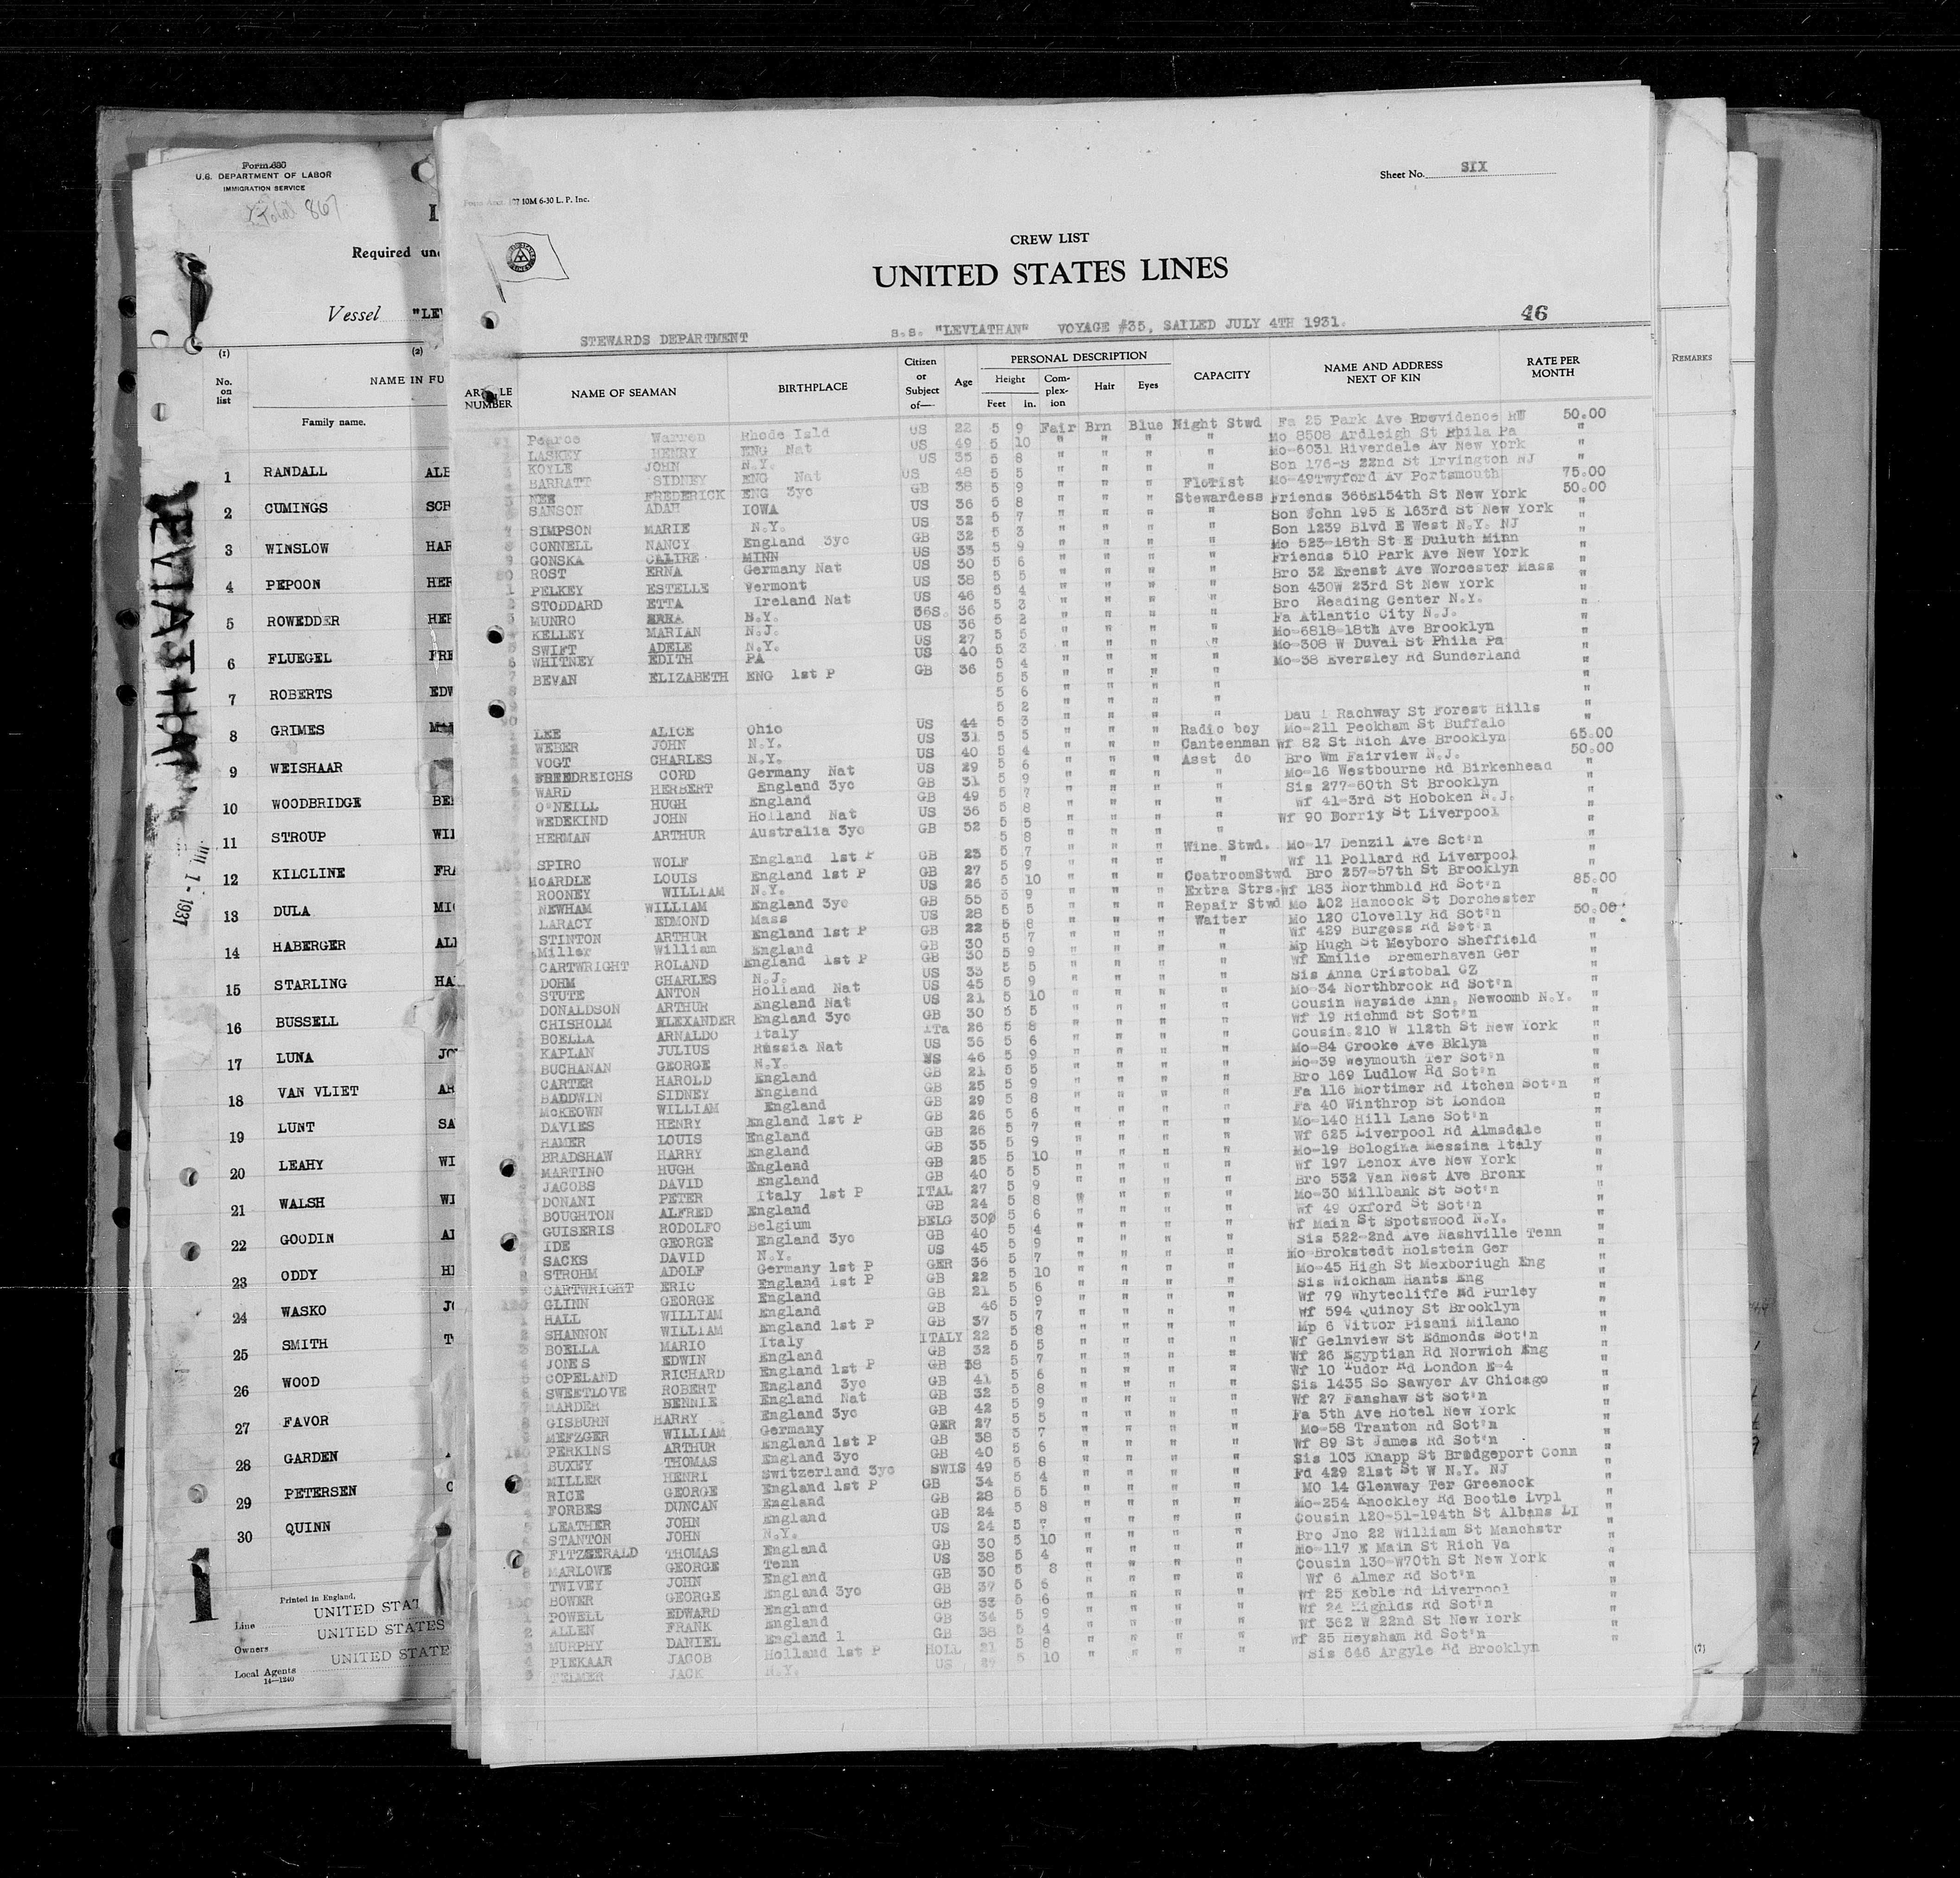 Form 680
U.S. DEPARTMENT OF LABOR
IMMIGRATION SERVICE
Total 867
Required und
Vessel "LEV
(1) (2)
No. on list
NAME IN FU
Family name.
1 RANDALL ALB
2 CUMINGS SCH
3 WINSLOW HAR
4 PEPOON HER
5 ROWEDDER HER
6 FLUEGEL FRE
7 ROBERTS EDW
8 GRIMES
9 WEISHAAR
10 WOODBRIDGE BE
11 STROUP WIL
12 KILCLINE FRA
13 DULA MIC
14 HABERGER ALE
15 STARLING HA
16 BUSSELL
17 LUNA JO
18 VAN VLIET AR
19 LUNT SA
20 LEAHY WI
21 WALSH WI
22 GOODIN AL
23 ODDY HE
24 WASKO JO
25 SMITH T
26 WOOD
27 FAVOR
28 GARDEN
29 PETERSEN
30 QUINN
LEVIATHAN
JUL 1-1931
1
Printed in England.
Line UNITED STAT
Owners UNITED STATES
Local Agents UNITED STATE
14—1240
Sheet No. SIX
107 10M 6-30 L. P. Inc.
CREW LIST
UNITED STATES LINES
46
STEWARDS DEPARTMENT s.s. "LEVIATHAN" VOYAGE #35, SAILED JULY 4TH 1931.
ARTICLE NUMBER NAME OF SEAMAN BIRTHPLACE Citizen or Subject of— Age PERSONAL DESCRIPTION Height Feet In. Complexion Hair Eyes CAPACITY NAME AND ADDRESS NEXT OF KIN RATE PER MONTH
Pearce Warren Rhode Isld US 22 5 9 Fair Brn Blue Night Stwd Fa 25 Park Ave Providence 50.00
LASKEY HENRY ENG Nat US 49 5 10 " " " " Mo 8508 Ardleigh St Phila Pa "
KOYLE JOHN N.Y. US 35 5 8 " " " " Mo-6031 Riverdale Av New York "
BARRATT SIDNEY ENG Nat US 48 5 5 " " " " Son 176-S 22nd St Irvington NJ "
NEE FREDERICK ENG 3yc GB 38 5 9 " " " Florist Mo-49Twyford Av Portsmouth 75.00
SANSON ADAH IOWA US 36 5 8 " " " Stewardess Friends 366E154th St New York 50.00
SIMPSON MARIE N.Y. US 32 5 7 " " " " Son John 195 E 163rd St New York "
CONNELL NANCY England 3yc GB 32 5 3 " " " " Son 1239 Blvd E West N.Y. NJ "
GONSKA CALIRE MINN US 33 5 9 " " " " Mo 523-18th St E Duluth Minn "
ROST ERNA Germany Nat US 30 5 6 " " " " Friends 510 Park Ave New York "
PELKEY ESTELLE Vermont US 38 5 5 " " " " Bro 32 Erenst Ave Worcester Mass "
STODDARD ETTA Ireland Nat US 46 5 4 " " " " Son 430W 23rd St New York "
MUNRO N.Y. 36 5 3 " " " " Bro Reading Center N.Y. "
KELLEY MARIAN N.J. US 36 5 2 " " " " Fa Atlantic City N.J. "
SWIFT ADELE N.Y. US 27 5 5 " " " " Mo-6818-18th Ave Brooklyn "
WHITNEY EDITH PA US 40 5 3 " " " " Mo-308 W Duval St Phila Pa "
BEVAN ELIZABETH ENG 1st P GB 36 5 4 " " " " Mo-38 Eversley Rd Sunderland "
5 5 " " " "
5 6 " " " "
5 2 " " " "
LEE ALICE Ohio US 44 5 3 " " " " Dau 1 Rachway St Forest Hills "
WEBER JOHN N.Y. US 31 5 5 " " " Radio boy Mo-211 Peckham St Buffalo "
VOGT CHARLES N.Y. US 40 5 4 " " " Canteenman Wf 82 St Nich Ave Brooklyn 65.00
FREEDREICHS CORD Germany Nat US 29 5 6 " " " Asst do Bro Wm Fairview N.J. 50.00
WARD HERBERT England 3yc GB 31 5 9 " " " " Mo-16 Westbourne Rd Birkenhead "
O'NEILL HUGH England GB 49 5 7 " " " " Sis 277-60th St Brooklyn "
WEDEKIND JOHN Holland Nat US 36 5 8 " " " " Wf 41-3rd St Hoboken N.J. "
HERMAN ARTHUR Australia 3yc GB 52 5 5 " " " " Wf 90 Dorriy St Liverpool "
5 8 " " "
100 SPIRO WOLF England 1st P GB 23 5 7 " " " Wine Stwd. Mo-17 Denzil Ave Sot'n "
McARDLE LOUIS England 1st P GB 27 5 9 " " " " Wf 11 Pollard Rd Liverpool "
ROONEY WILLIAM N.Y. US 26 5 10 " " " CoatroomStwd Bro 257-57th St Brooklyn "
NEWHAM WILLIAM England 3yc GB 55 5 9 " " " Extra Strs. Wf 183 Northmbld Rd Sot'n 85.00
LARACY EDMOND Mass US 28 5 5 " " " Repair Stwd Mo 102 Hancock St Dorchester "
STINTON ARTHUR England 1st P GB 22 5 8 " " " Waiter Mo 120 Clovelly Rd Sot'n 50.00
Miller William England GB 30 5 7 " " " " Wf 429 Burgess Rd Sot'n "
CARTWRIGHT ROLAND England 1st P GB 30 5 9 " " " " Mp Hugh St Meyboro Sheffield "
DOHM CHARLES N.J. US 33 5 5 " " " " Wf Emilie Bremerhaven Ger "
STUTE ANTON Holland Nat US 45 5 9 " " " " Sis Anna Cristobal CZ "
DONALDSON ARTHUR England Nat US 21 5 10 " " " " Mo-34 Northbrook Rd Sot'n "
CHISHOLM ALEXANDER England 3yc GB 30 5 5 " " " " Cousin Wayside Inn, Newcomb N.Y. "
BOELLA ARNALDO Italy ITa 26 5 8 " " " " Wf 19 Richmd St Sot'n "
KAPLAN JULIUS Russia Nat US 36 5 6 " " " " Cousin 210 W 112th St New York "
BUCHANAN GEORGE N.Y. US 46 5 9 " " " " Mo-84 Crooke Ave Bklyn "
CARTER HAROLD England GB 21 5 5 " " " " Mo-39 Weymouth Ter Sot'n "
BADDWIN SIDNEY England GB 25 5 9 " " " " Bro 169 Ludlow Rd Sot'n "
McKEOWN WILLIAM England GB 29 5 8 " " " " Fa 116 Mortimer Rd Itchen Sot'n "
DAVIES HENRY England 1st P GB 26 5 6 " " " " Fa 40 Winthrop St London "
HAMER LOUIS England GB 26 5 7 " " " " Mo-140 Hill Lane Sot'n "
BRADSHAW HARRY England GB 35 5 9 " " " " Wf 625 Liverpool Rd Almsdale "
MARTINO HUGH England GB 25 5 10 " " " " Mo-19 Bologina Messina Italy "
JACOBS DAVID England GB 40 5 5 " " " " Wf 197 Lenox Ave New York "
DONANI PETER Italy 1st P ITAL 27 5 9 " " " " Bro 532 Van Nest Ave Bronx "
BOUGHTON ALFRED England GB 24 5 8 " " " " Mo-30 Millbank St Sot'n "
GUISERIS RODOLFO Belgium BELG 30 5 6 " " " " Wf 49 Oxford St Sot'n "
IDE GEORGE England 3yc GB 40 5 4 " " " " Wf Main St Spotswood N.Y. "
SACKS DAVID N.Y. US 45 5 9 " " " " Sis 522-2nd Ave Nashville Tenn "
STROHM ADOLF Germany 1st P GER 36 5 7 " " " " Mo-Brokstedt Holstein Ger "
CARTWRIGHT ERIC England 1st P GB 22 5 10 " " " " Mo-45 High St Mexboriugh Eng "
GLINN GEORGE England GB 21 5 6 " " " " Sis Wickham Hants Eng "
HALL WILLIAM England GB 46 5 9 " " " " Wf 79 Whytecliffe Rd Purley "
SHANNON WILLIAM England 1st P GB 37 5 7 " " " " Wf 594 Quincy St Brooklyn "
BOELLA MARIO Italy ITALY 22 5 8 " " " " Mp 6 Vittor Pisani Milano "
JONES EDWIN England GB 32 5 5 " " " " Wf Gelnview St Edmonds Sot'n "
COPELAND RICHARD England 1st P GB 38 5 7 " " " " Wf 26 Egyptian Rd Norwich Eng "
SWEETLOVE ROBERT England 3yc GB 41 5 6 " " " " Wf 10 Tudor Rd London E-4 "
MARDER BENNIE England Nat GB 32 5 8 " " " " Sis 1435 So Sawyer Av Chicago "
GISBURN HARRY England 3yc GB 42 5 9 " " " " Wf 27 Fanshaw St Sot'n "
MEFZGER WILLIAM Germany GER 27 5 5 " " " " Fa 5th Ave Hotel New York "
PERKINS ARTHUR England 1st P GB 38 5 7 " " " " Mo-58 Tranton Rd Sot'n "
BUXEY THOMAS England 3yc GB 40 5 6 " " " " Wf 89 St James Rd Sot'n "
MILLER HENRI Switzerland 3yc SWIS 49 5 8 " " " " Sis 103 Knapp St Bredgeport Conn "
RICE GEORGE England 1st P GB 34 5 4 " " " " Fd 429 21st St W N.Y. NJ "
FORBES DUNCAN England GB 28 5 5 " " " " MO 14 Glenway Ter Greenock "
LEATHER JOHN England GB 24 5 8 " " " " Mo-254 Knockley Rd Bootle Lvpl "
STANTON JOHN N.Y. US 24 5 7 " " " " Cousin 120-51-194th St Albans LI "
FITZGERALD THOMAS England GB 30 5 10 " " " " Bro Jno 22 William St Manchstr "
MARLOWE GEORGE Tenn US 38 5 4 " " " " Mo-117 E Main St Rich Va "
TWIVEY JOHN England GB 30 5 8 " " " " Cousin 130-W70th St New York "
BOWER GEORGE England 3yc GB 37 5 6 " " " " Wf 6 Almer Rd Sot'n "
POWELL EDWARD England GB 33 5 6 " " " " Wf 25 Keble Rd Liverpool "
ALLEN FRANK England GB 34 5 9 " " " " Wf 24 Highlds Rd Sot'n "
MURPHY DANIEL England 1 GB 38 5 4 " " " " Wf 362 W 22nd St New York "
PIEKAAR JACOB Holland 1st P HOLL 21 5 8 " " " " Wf 25 Heysham Rd Sot'n "
TELMER JACK N.Y. US 27 5 10 " " " " Sis 646 Argyle Rd Brooklyn "
REMARKS
(7)